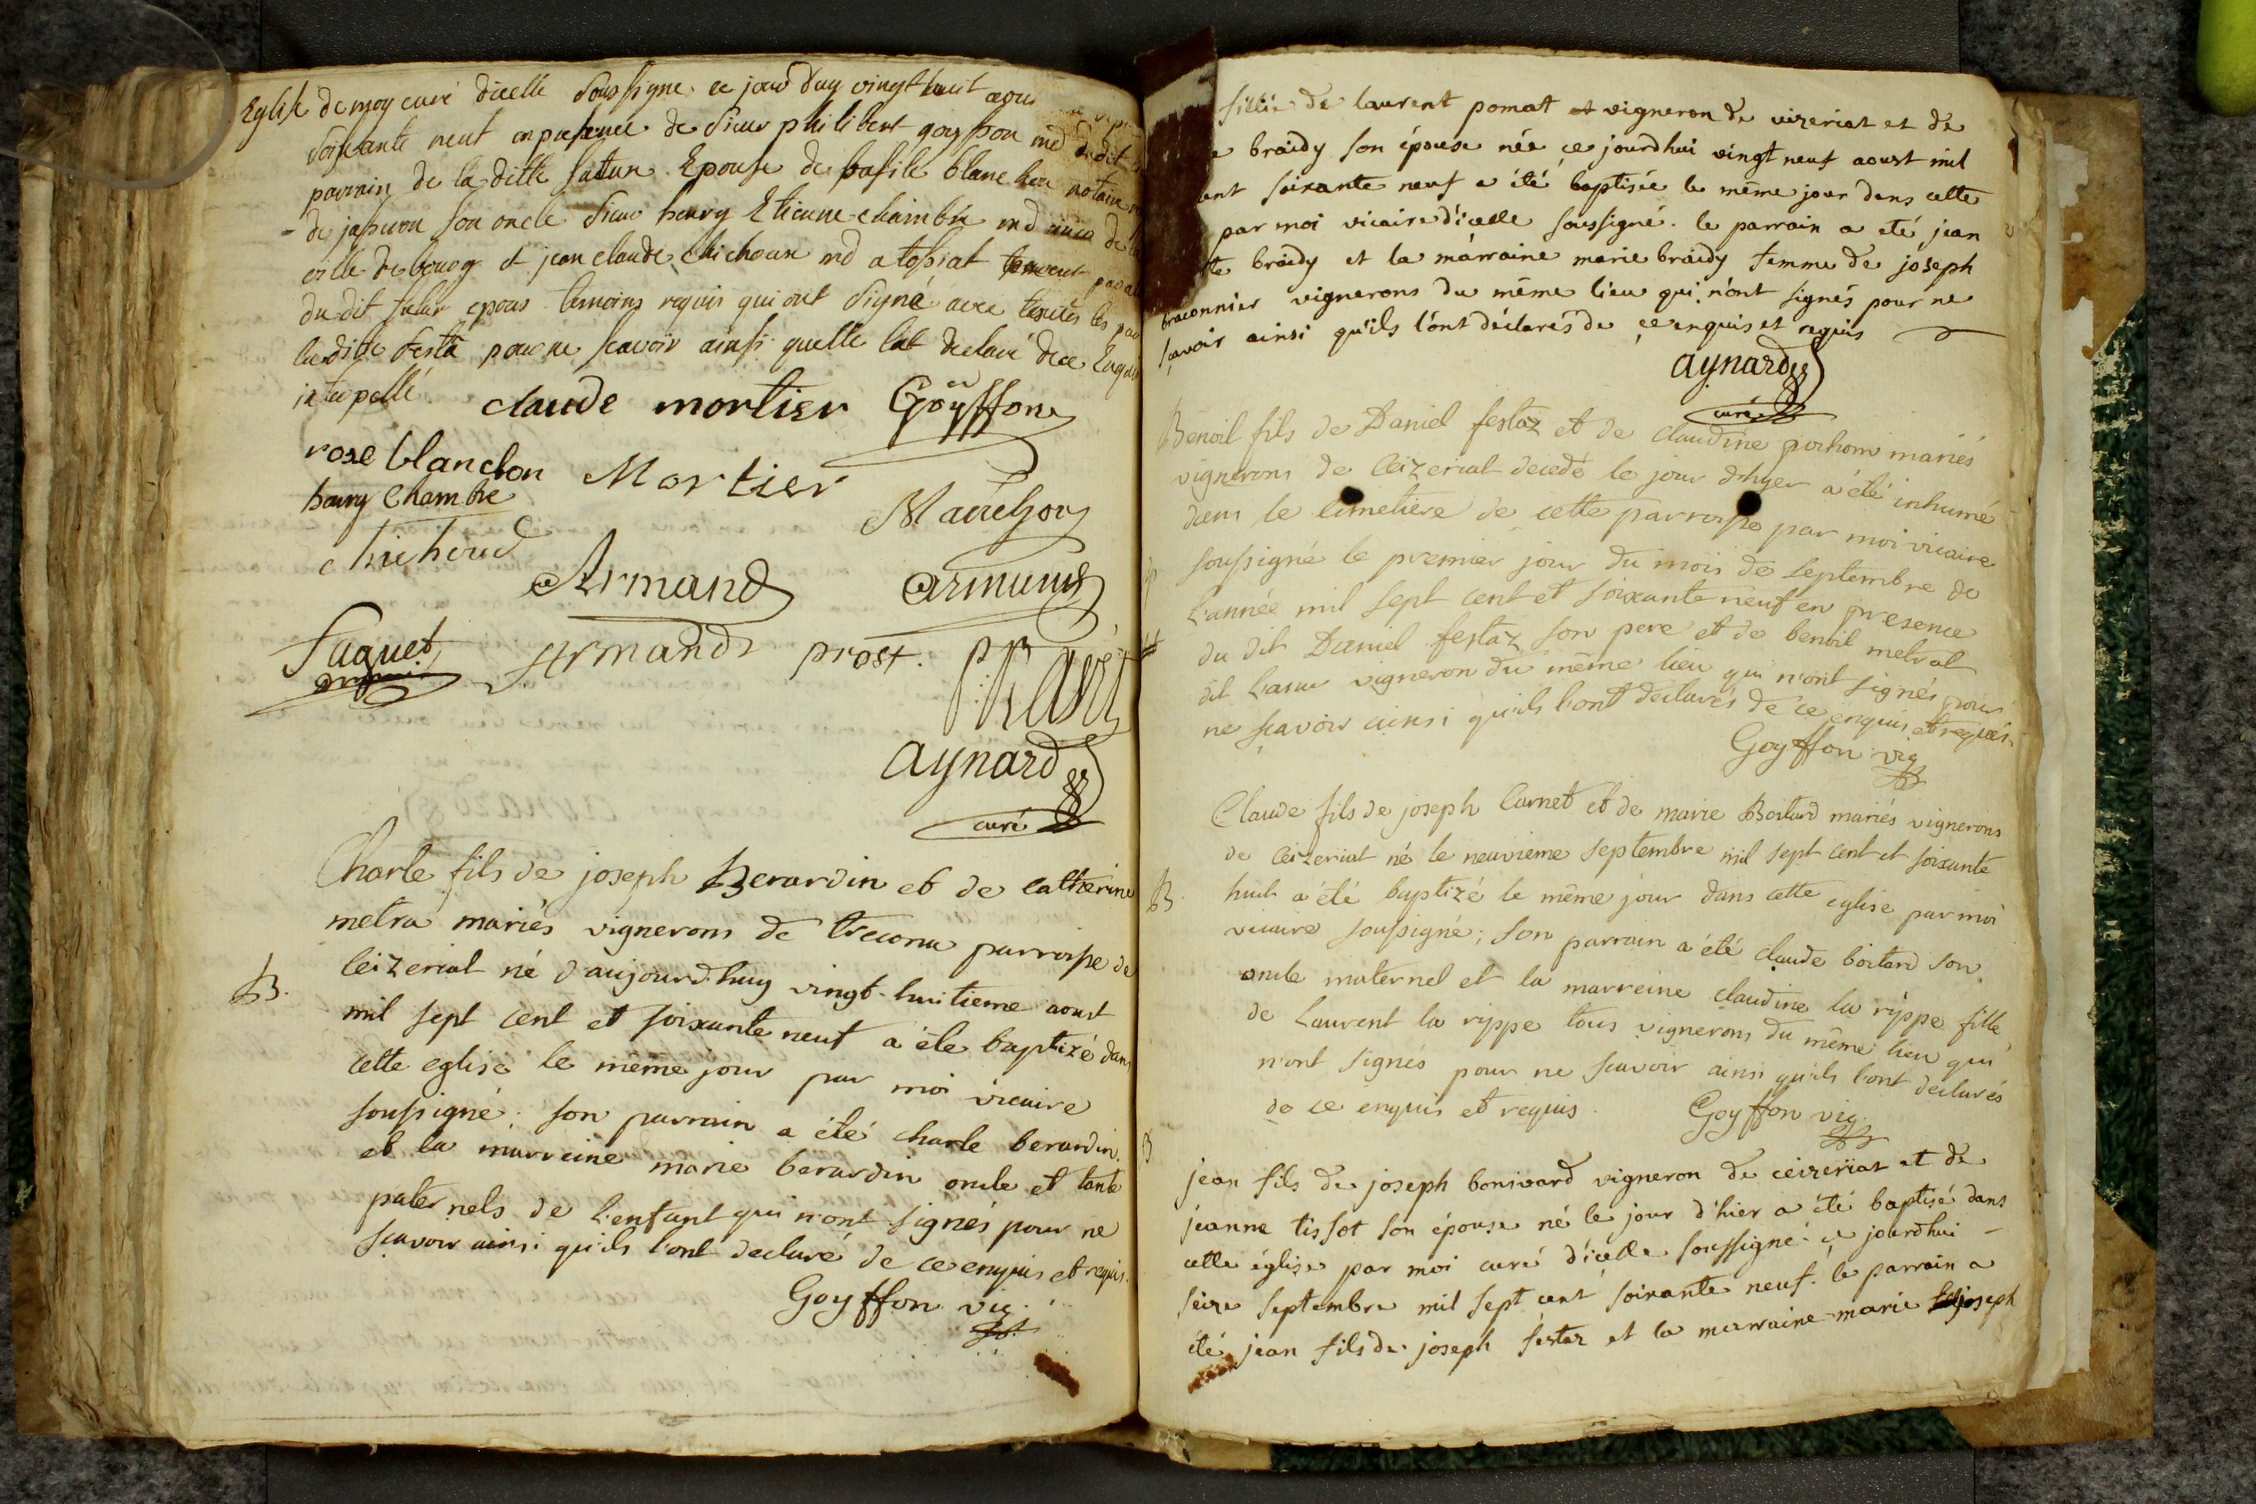 Eglise de moy curé dicelle soussigné ce jourd'uy vingt huit
soixante neuf en presence de sieur philibert goyffon md dudit
parrain de la ditte future Epouse de basile blanchon notaire
de jasseron son oncle sieur henry Etienne chambre md de
ville de bourg et jean claude chichoux md a tossiat
du dit futur epoux temoins requis qui ont signé avec les
laditte festa pour ne scavoir ainsi quelle lat declaré de ce
interpellé.
claude mortier Goÿffon
rose blanchon Mortier
henry Chambre
Mauchon
chichoud
Armand armand
Faguet
Armand prost.
aynard
curé
Charle fils de joseph Berardin et de catherine
metra mariés vignerons de treconu parroisse de
B.
ceizeriat né d'aujourd'huy vingt-huitieme aoust
mil sept cent et soixante neuf a été baptizé dans
cette eglise le même jour par moi vicaire
soussigné; son parrain a été charle berardin
et la marreine marie berardin oncle et tante
paternels de l'enfant qui n'ont signés pour ne
scavoir ainsi qu'ils l'ont declaré de ce enquis et requis.
Goyffon vic.
fille de laurent pomat vigneron de ceizeriat et de
braidy son épouse née ce jourdhui vingt neuf aoust mil
cent soixante neuf a été baptisée le même jour dans cette
par moi vicaire d'icelle soussigné. le parrain a été jean
braidy et la marraine marie braidy femme de joseph
braconnier vignerons du même lieu qui n'ont signés pour ne
sçavoir ainsi qu'ils l'ont déclarés de ce enquis et requis
aynard
curé
Benoit fils de Daniel festaz et de claudine pochon mariés
vignerons de Ceizeriat decedé le jour d'hyer a été inhumé
dans le cimetiere de cette parroisse par moi vicaire
soussigné le premier jour du mois de septembre de
l'année mil sept cent et soixante neuf en presence
du dit Daniel festaz son pere et de benoit metrat
dit vigneron du même lieu qui n'ont signés pour
ne sçavoir ainsi qu'ils l'ont declarés de ce enquis et requis.
Goyffon vic
Claude fils de joseph Carnet et de marie Boitard mariés vignerons
de Ceizeriat né le neuvieme septembre mil sept cent et soixante
B.
huit a été baptizé le même jour dans cette eglise par moi
vicaire soussigné; son parrain a été claude boitard son
oncle maternel et la marreine claudine la rippe fille
de Laurent la rippe tous vignerons du même lieu qui
n'ont signés pour ne scavoir ainsi qu'ils l'ont declarés
de ce enquis et requis.
Goyffon vic.
B
jean fils de joseph bonivard vigneron de ceizeriat et de
jeanne tissot son épouse né le jour d'hier a été baptisé dans
cette église par moi curé d'icelle soussigné ce jourdhui
seize septembre mil sept cent soixante neuf. le parrain a
été jean fils de joseph festaz et la marraine marie joseph